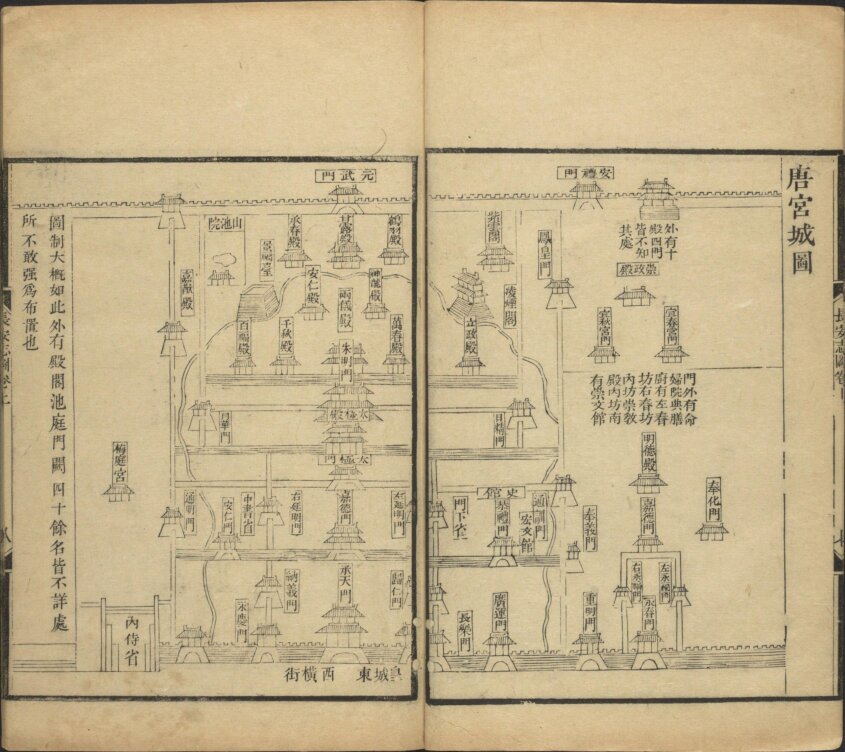 唐宮城圖
安禮門
外有十
殿四門
皆不知
其處
崇政殿
宜春宮門
宜秋宮門
鳳皇門
紫雲閣
凌煙閣
立政殿
門外有命
婦院典膳
廚有左春
坊右春坊
內坊崇敎
殿內坊南
有崇文館
明德殿
嘉德門
奉化門
左永福門
右永福門
永春門
重明門
奉義門
通訓門
日精門
史館
宏文館
恭禮門
門下省
廣運門
長樂門
元武門
鶴羽殿
甘露殿
承春殿
山池院
景福臺
神龍殿
兩儀殿
安仁殿
萬春殿
千秋殿
百福殿
朱明門
太極殿
太極門
月華門
嘉猷殿
左延明門
嘉德門
右延明門
中書省
安仁門
通明門
歸仁門
承天門
納義門
永安門
梅庭宮
內侍省
皇城東
西橫街
圖制大槪如此外有殿閣池庭門闕四十餘名皆不詳處
所不敢强爲布置也
長安志圖卷上